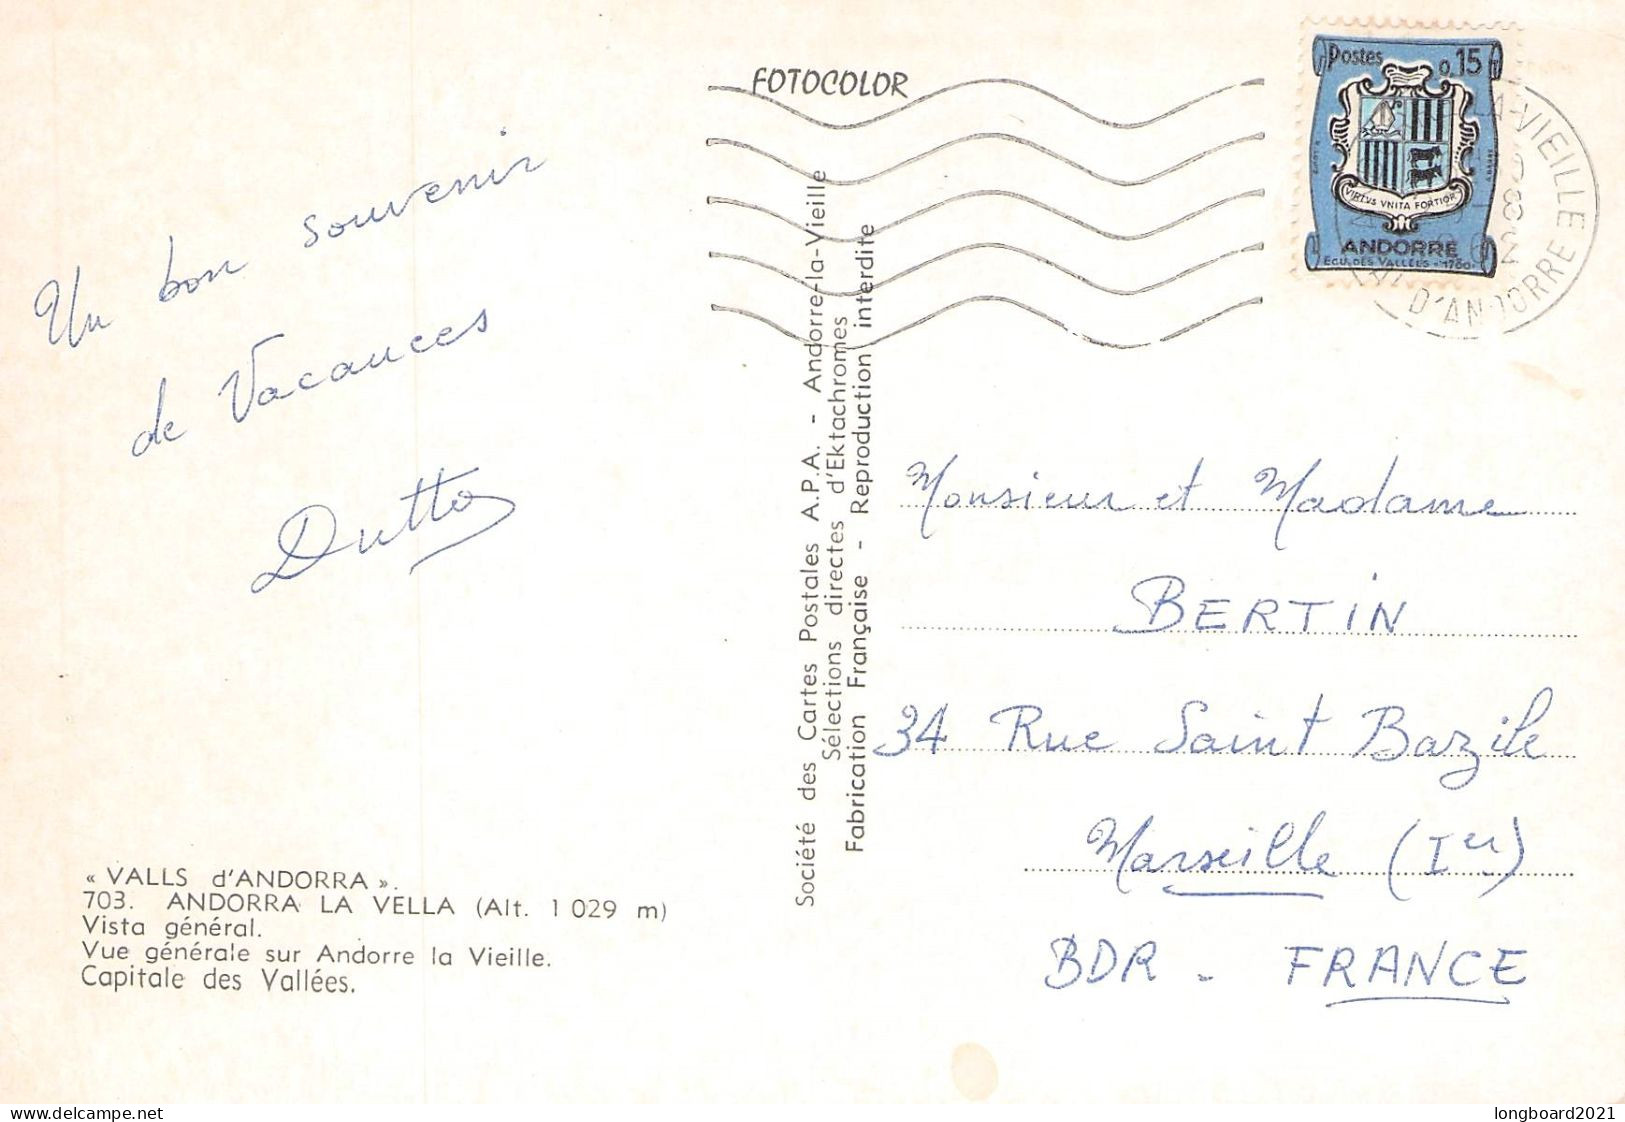 FOTOCOLOR
Postes 0,15
VIRTVS VNITA FORTIOR
ANDORRE
ECU DES VALLÉES - 1780
-VIEILLE
D'ANDORRE
Un bon souvenir
de Vacances
Dutto
Société des Cartes Postales A.P.A. - Andorre-la-Vieille
Sélections directes d'Ektachromes
Fabrication Française - Reproduction interdite
Monsieur et Madame
BERTIN
34 Rue Saint Bazile
Marseille (Ier)
BDR - FRANCE
« VALLS d'ANDORRA ».
703. ANDORRA LA VELLA (Alt. 1 029 m)
Vista général.
Vue générale sur Andorre la Vieille.
Capitale des Vallées.
longboard2021